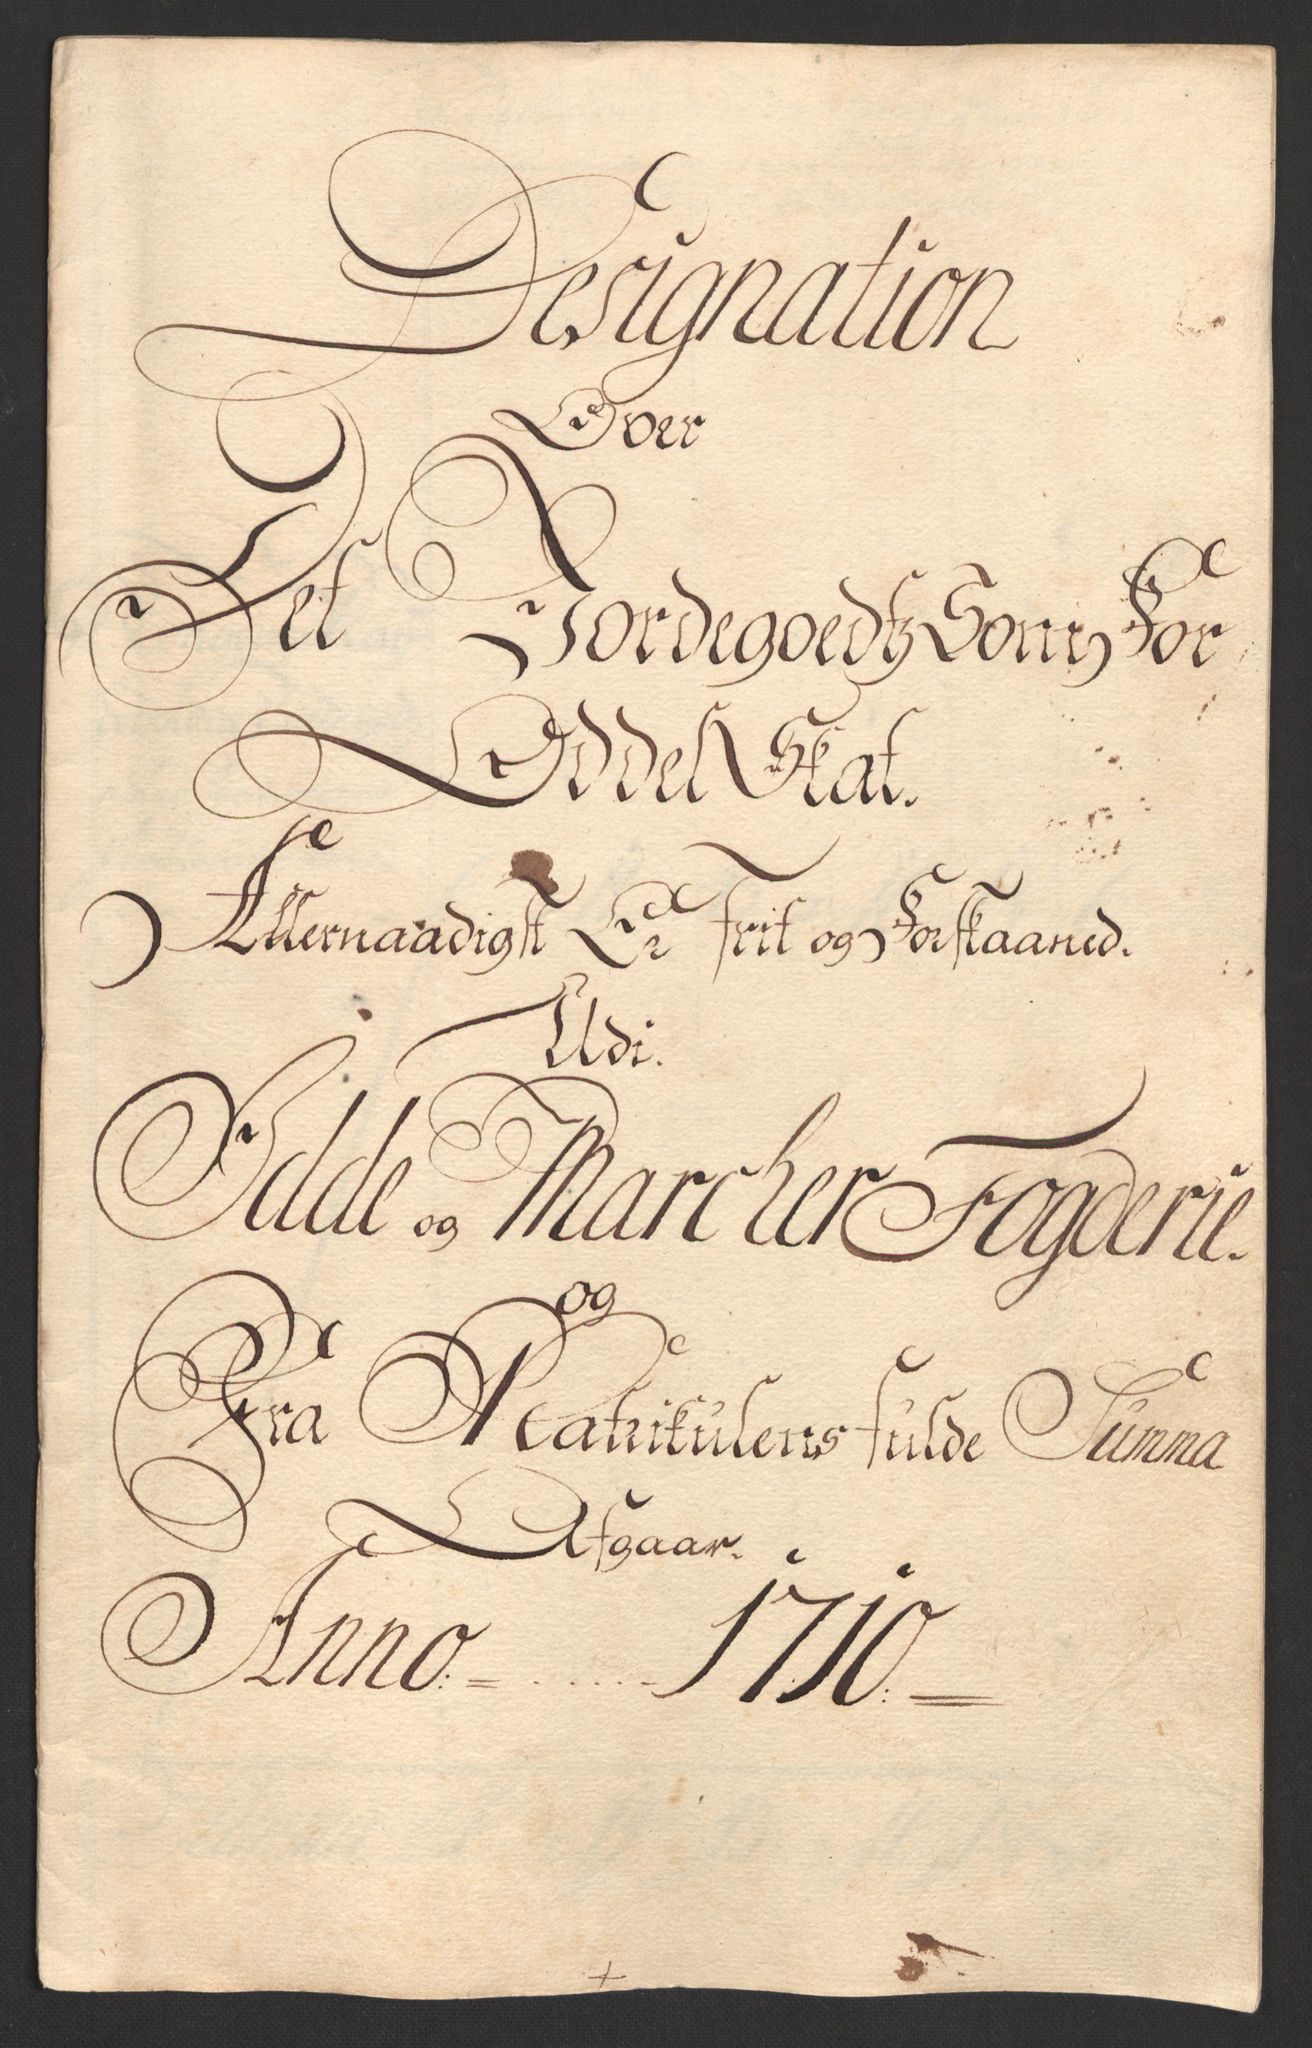 Designation
Over
Det Jordegoedtz Som For
Oddel Skat.
Allernaadigst Er frit og Forskaaned.
Udi.
Idde og Marcker Fogderie.
og
Fra Matrikulens fulde Summa
Afgaar.
Anno:= ..... 1710:=